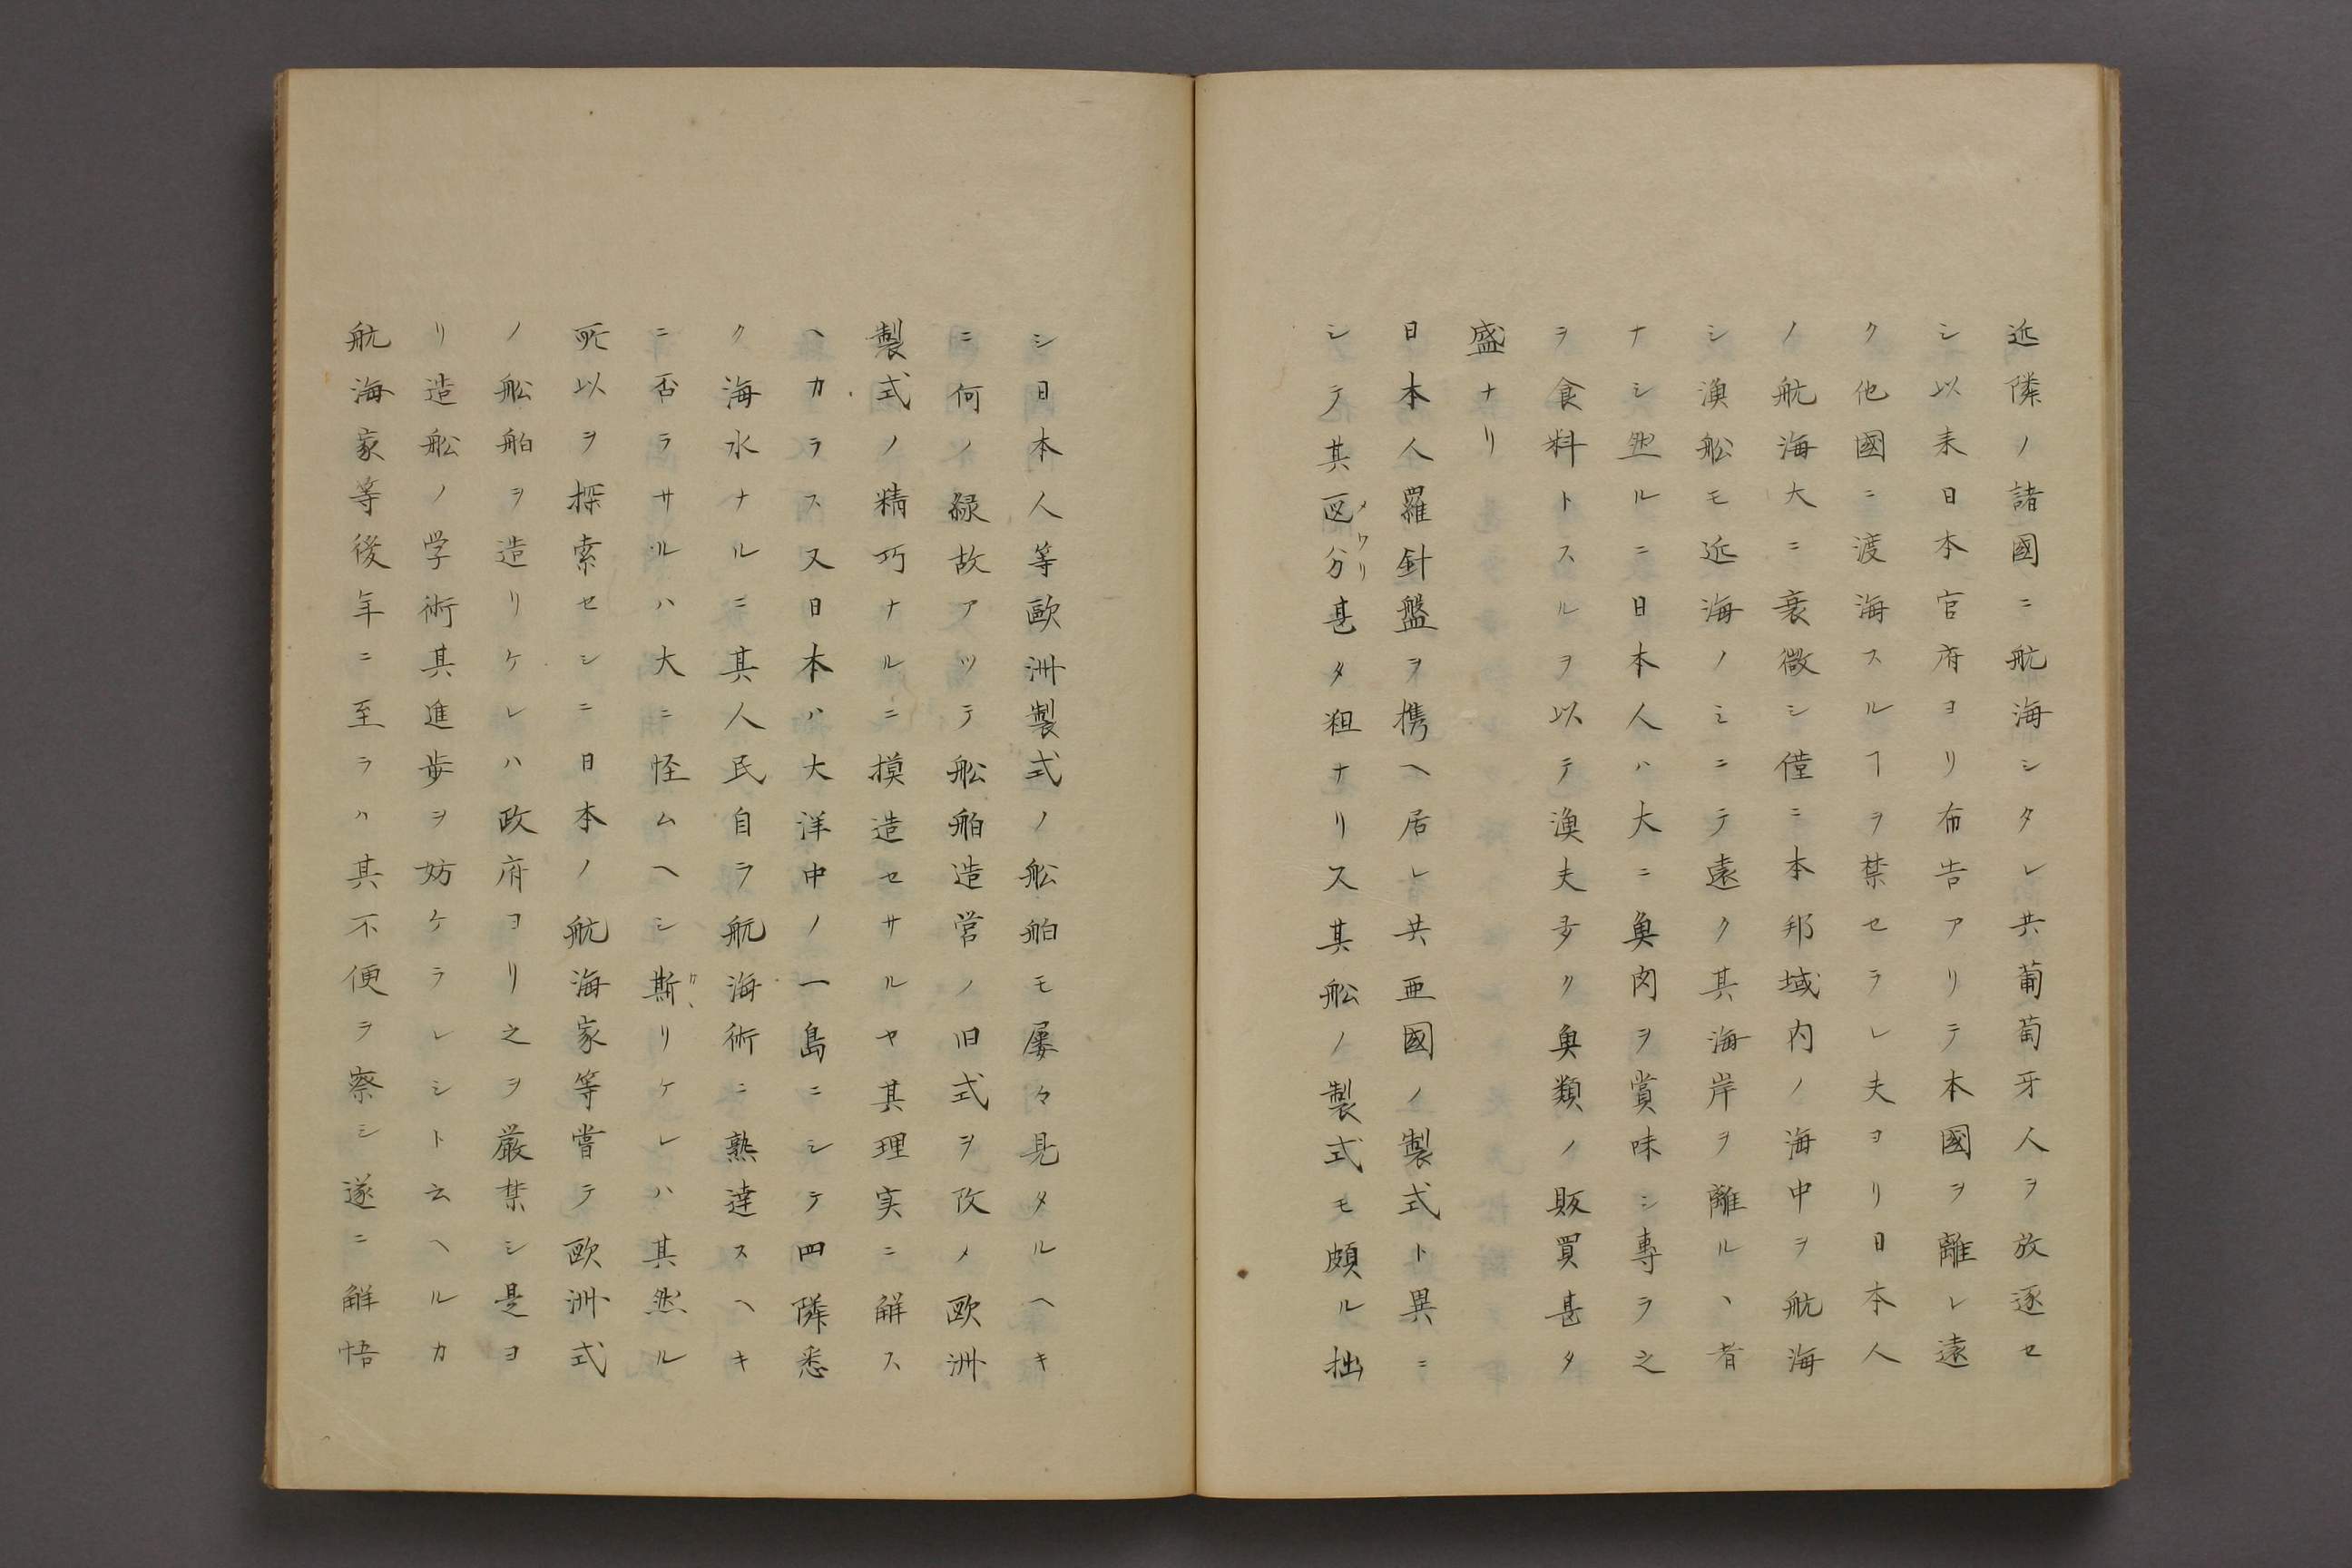 近隣ノ諸國ニ航海シタレ共葡萄牙人ヲ放逐セ
シ以来日本官府ヨリ布告アリテ本國ヲ離レ遠
ク他國ニ渡海スルヿヲ禁セラレ夫ヨリ日本人
ノ航海大ニ衰微シ僅ニ本邦域内ノ海中ヲ航海
シ漁舩モ近海ノミニテ遠ク其海岸ヲ離ルヽ者
ナシ然ルニ日本人ハ大ニ魚肉ヲ賞味シ專ラ之
ヲ食料トスルヲ以テ漁夫多ク魚類ノ販買甚タ
盛ナリ
日本人羅針盤ヲ携ヘ居レ共亜國ノ製式ト異ニ
シテ其区分メワリ甚タ粗ナリ又其舩ノ製式モ頗ル拙
シ日本人等歐洲製式ノ舩舶モ屢々見タルヘキ
ニ何ノ縁故アツテ舩舶造営ノ旧式ヲ改メ歐洲
製式ノ精巧ナルニ摸造セサルヤ其理実ニ解ス
ヘカラス又日本ハ大洋中ノ一島ニシテ四隣悉
ク海水ナルニ其人民自ラ航海術ニ熟達スヘキ
ニ否ラサルハ大ニ怪ムヘシ斯リケレハ其然ル
所以ヲ探索セシニ日本ノ航海家等嘗テ歐洲式
ノ舩舶ヲ造リケレハ政府ヨリ之ヲ厳禁シ是ヨ
リ造舩ノ学術其進歩ヲ妨ケラレシト云ヘルカ
航海家等後年ニ至ラハ其不便ヲ察シ遂ニ解悟